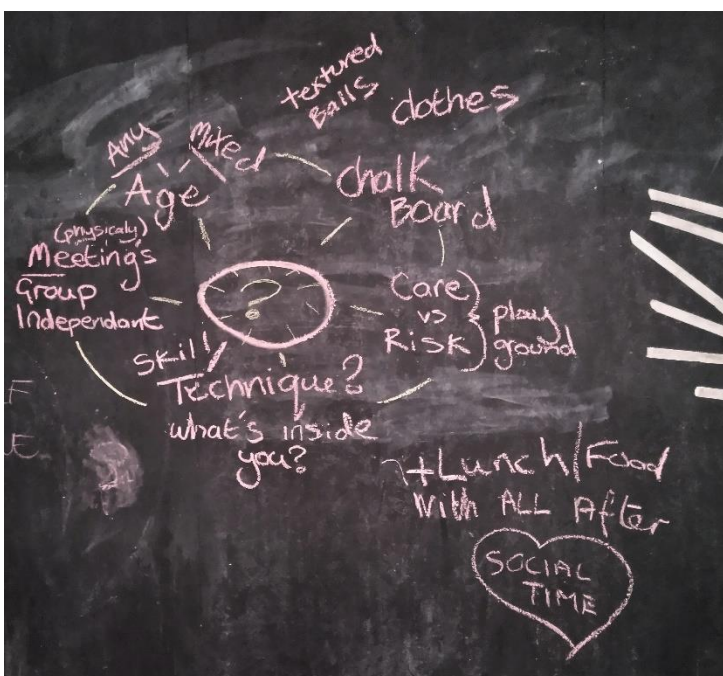 textured
Balls
clothes
Any
Mixed
Age
Chalk
Board
(physicaly)
Meetings
Group
Independant
?
Care
vs
Risk
play
ground
Skill
Technique?
what's inside
you?
+Lunch/Food
With ALL After
SOCIAL
TIME